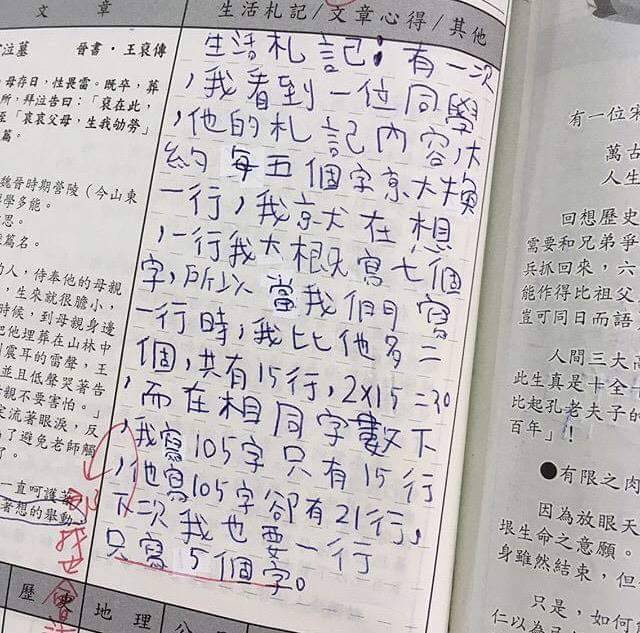 文 章
泣墓 晉書・王裒傳
母存日,性畏雷。既卒,葬
所,拜泣告曰:「裒在此,
至「哀哀父母,生我劬勞」
篇。
魏晉時期營陵(今山東
學多能。
思。
篇名。
的人,侍奉他的母親
,生來就很膽小,
時候,到母親身邊
把他埋葬在山林中
到震耳的雷聲,王
並且低聲哭著告
母親不要害怕。」
流著眼淚,反
了避免老師觸
了。
一直呵護著
著想的舉動
歷史 地理 公
生活札記/文章心得/其他
生活札記:有一次
,我看到一位同學
,他的札記內容,大
約每五個字就大換
一行,我就在想
,一行我大概寫七個
字,所以當我們寫
一行時,我比他多二
個,共有15行,2x15=30
,而在相同字數下
,我寫105字只有15行
,他寫105字卻有21行,
下次我也要一行
只寫5個字。
有一位宋
萬古
人生
回想歷史
需要和兄弟爭
兵抓回來,六
能作得比祖父
豈可同日而語
人間三大高
此生真是十全十
比起孔老夫子的
百年」!
●有限之肉
因為放眼天
垠生命之意願。
身雖然結束,但
只是,如何實
仁以為己